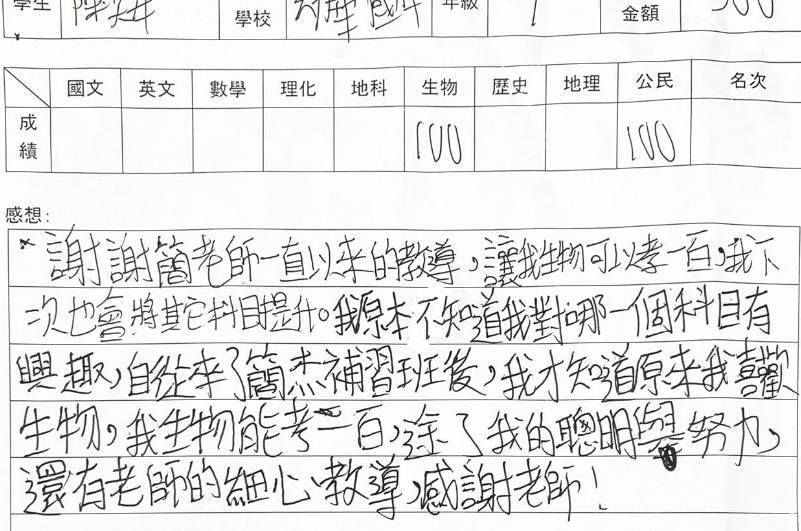 學生 陳 學校 國中 年級 1 金額 500
國文 英文 數學 理化 地科 生物 歷史 地理 公民 名次
成績 100 100
感想:
謝謝簡老師一直以來的教導,讓我生物可以孝一百,我下
次也會將其它科目提升。我原本不知道我對哪一個科目有
興趣,自從來了簡杰補習班後,我才知道原來我喜歡
生物,我生物能考一百,除了我的聰明與努力,
還有老師的細心教導,感謝老師!